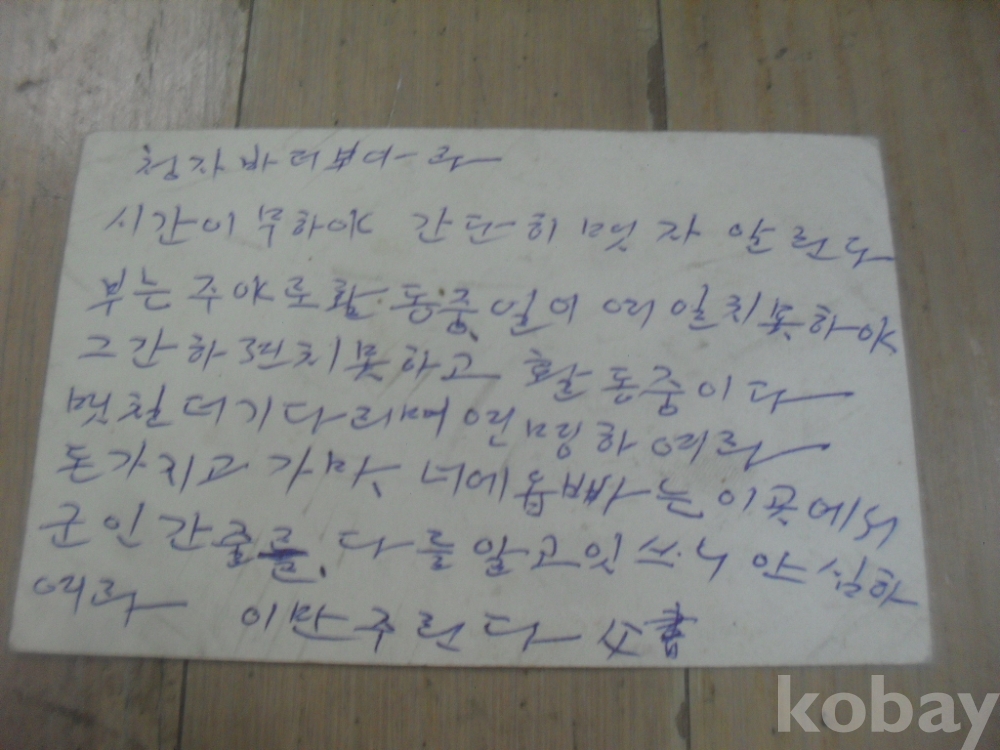 청자 바더보아라
시간이 무하야 간단히 멧 자 알린다
부는 주야로 활동중 일이 여일치 못하야
그간 하련치 못하고 활동중이다
멧칠 더 기다리며 연명하여라
돈 가지고 가마. 너에 옵빠는 이곳에서
군인 간 줄를. 다를 알고 잇쓰니 안심하
여라 이만 주린다 父書
kobay